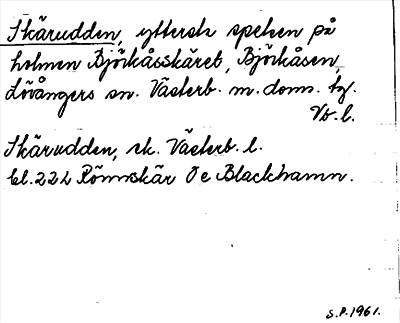 Skärudden, yttersta spetsen på
holmen Björkåsskäret, Björkåsen,
Lövångers sn. Västerb. m. doms. tg.
Vb. l.
Skärudden, sk. Västerb. l.
bl. 222 Rönnskär O e Blackhamn.
S.P. 1961.